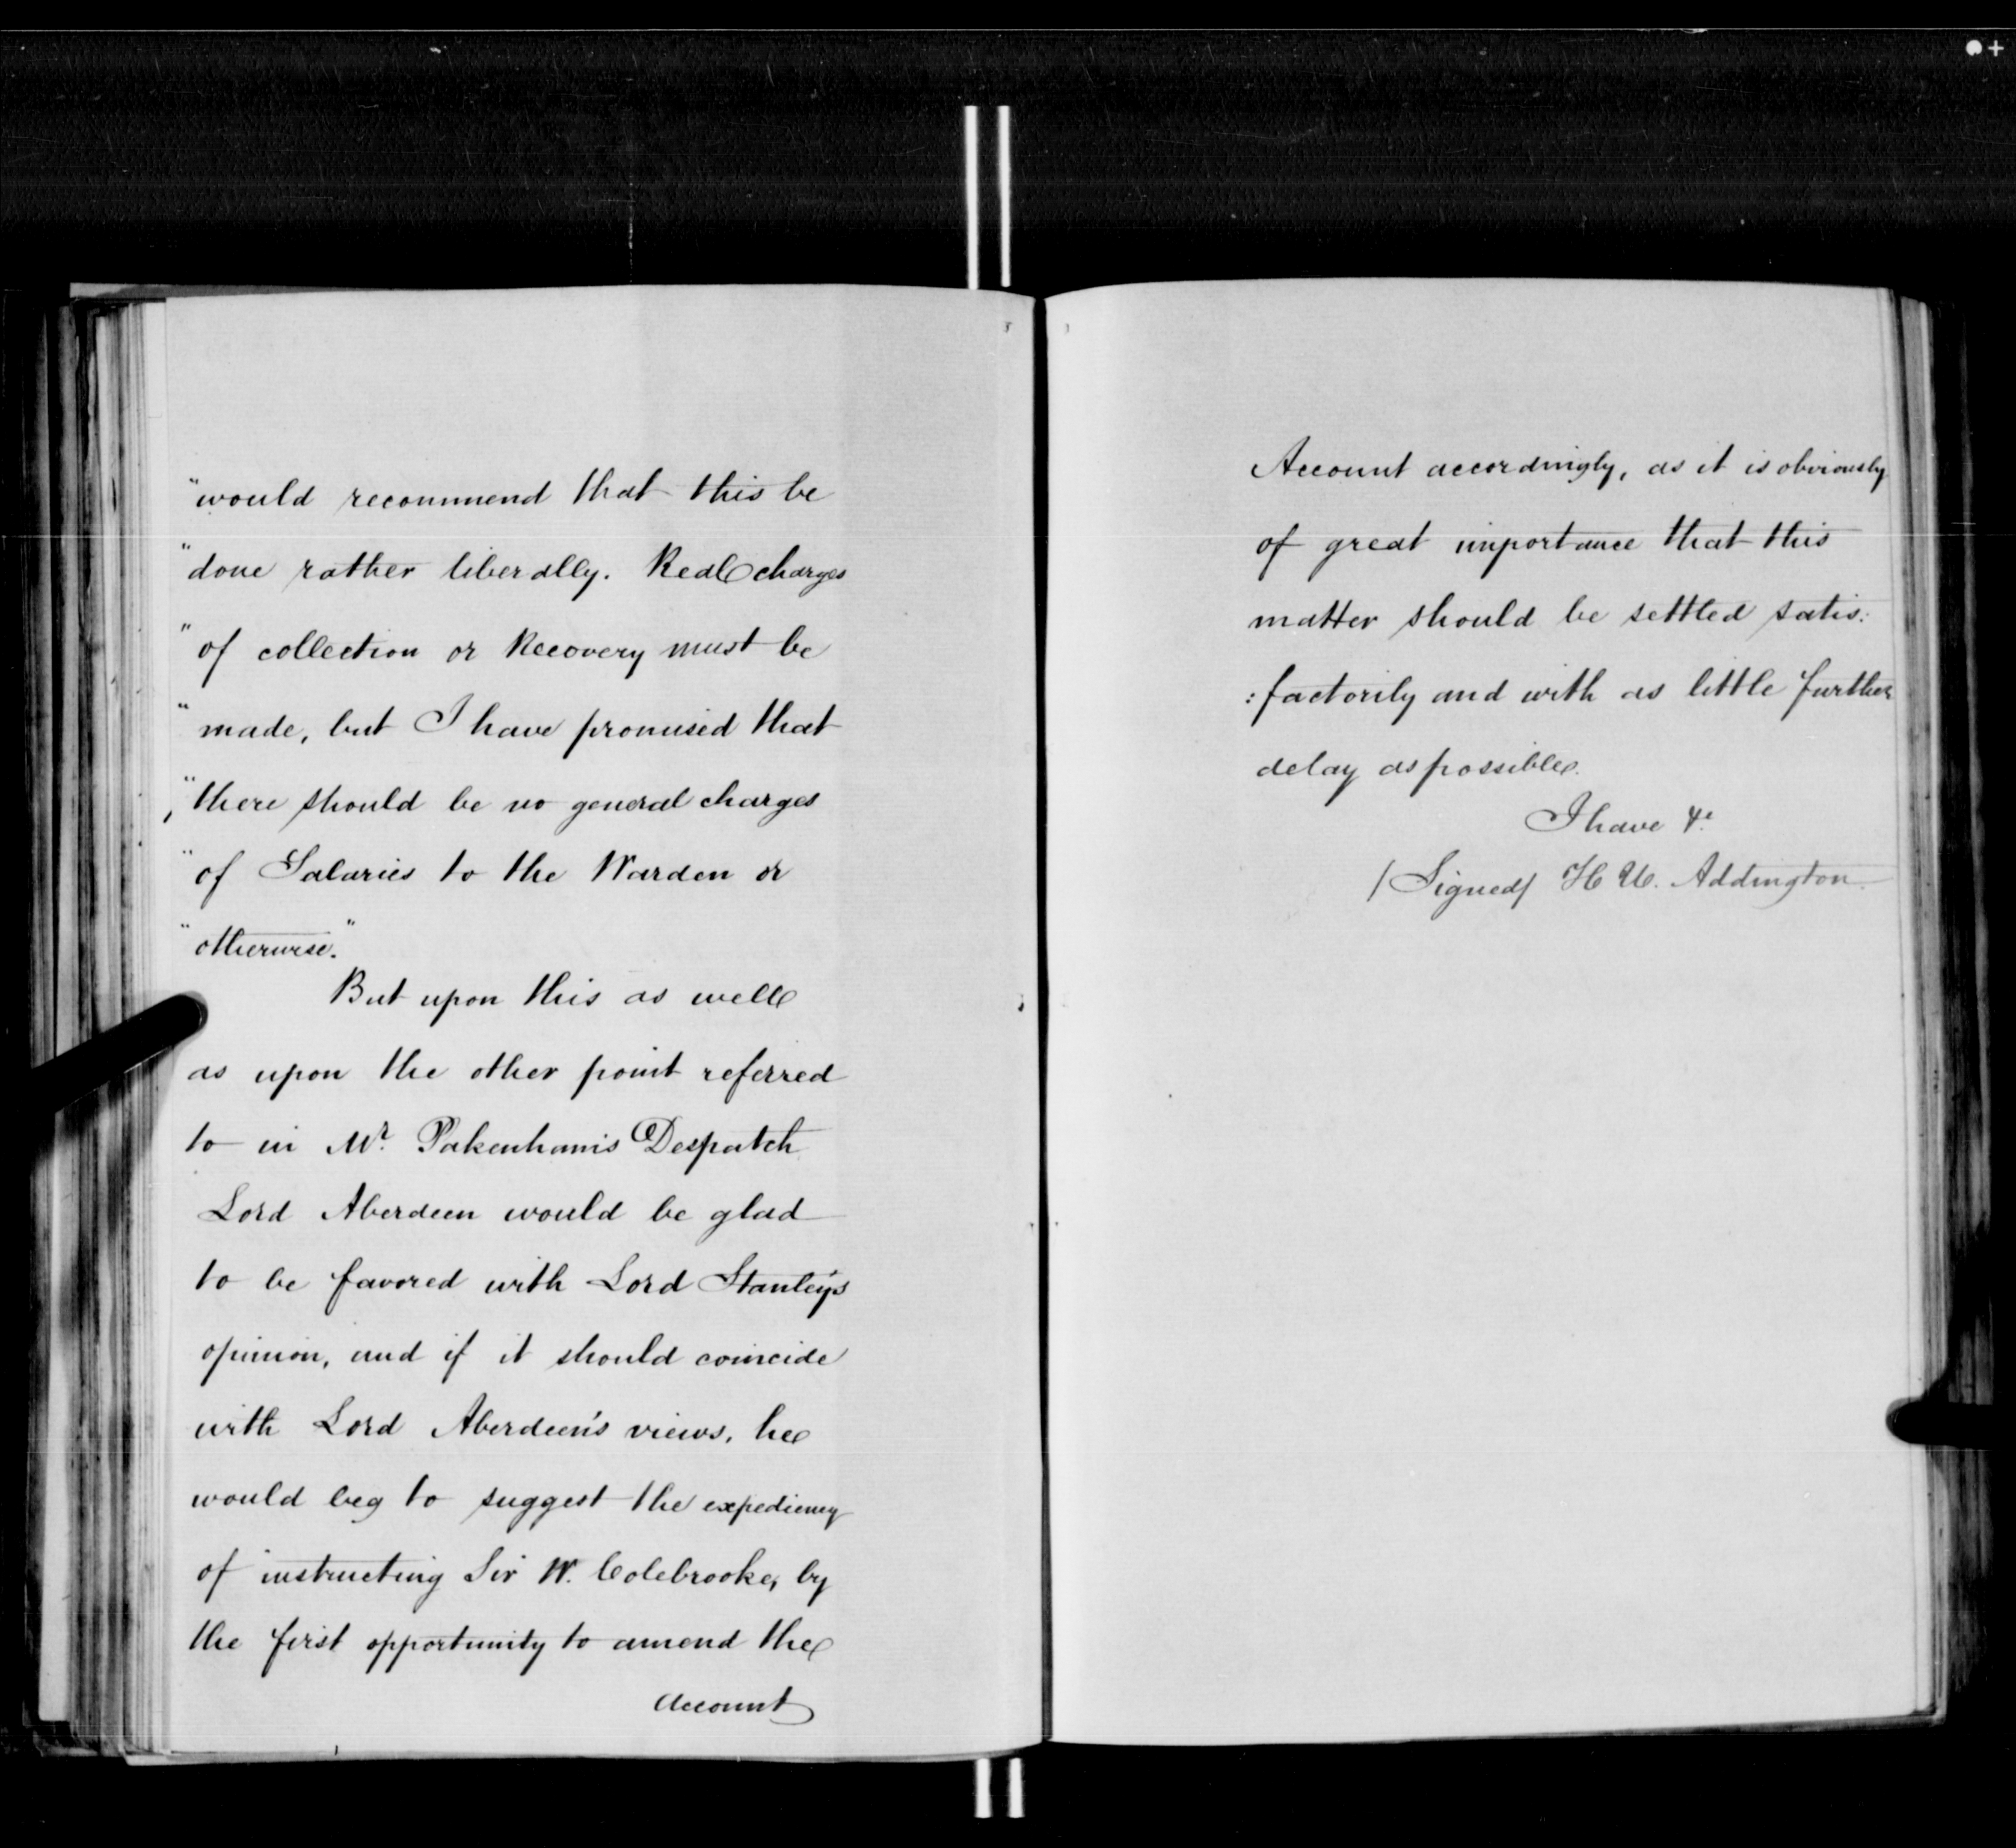 "would recommend that this be
"done rather liberally. Real charges
"of collection or Recovery must be
"made, but I have promised that
"there should be no general charges
"of Salaries to the Warden or
"otherwise."
But upon this as well
as upon the other point referred
to in Mr. Pakenham's Despatch
Lord Aberdeen would be glad
to be favored with Lord Stanley's
opinion, and if it should coincide
with Lord Aberdeen's views, he
would beg to suggest the expediency
of instructing Sir W. Colebrooke, by
the first opportunity to amend the
Account
Account accordingly, as it is obviously
of great importance that this
matter should be settled satis:
:factorily and with as little further
delay as possible.
I have &c.
/Signed/ H. U. Addington